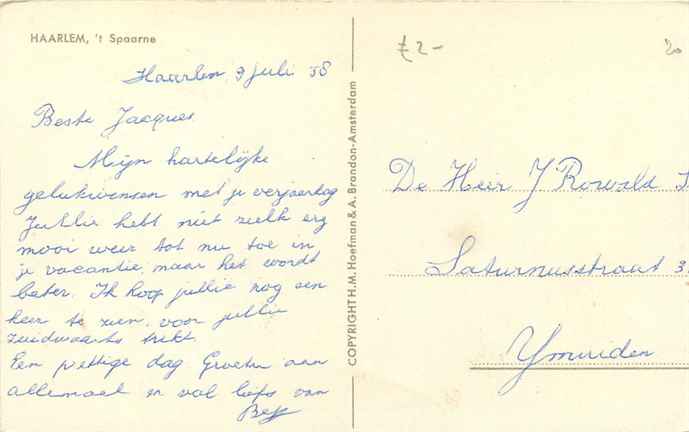 HAARLEM, 't Spaarne
Haarlem, 9 juli '58
Beste Jacques
Mijn hartelijke
gelukwensen met je verjaardag
Jullie hebt niet zielk erg
mooi weer tot nu toe in
je vacantie, maar het wordt
beter. Ik hoop jullie nog een
keer te zien, voor jullie
zuidwaarts trekt.
Een prettige dag Groeten aan
allemaal en veel liefs van
Bep
COPYRIGHT H.M. Hoefman & A. Brandon-Amsterdam
£ 2-
20
De Heer J Rowold
Saturnusstraat 3
Ymuiden